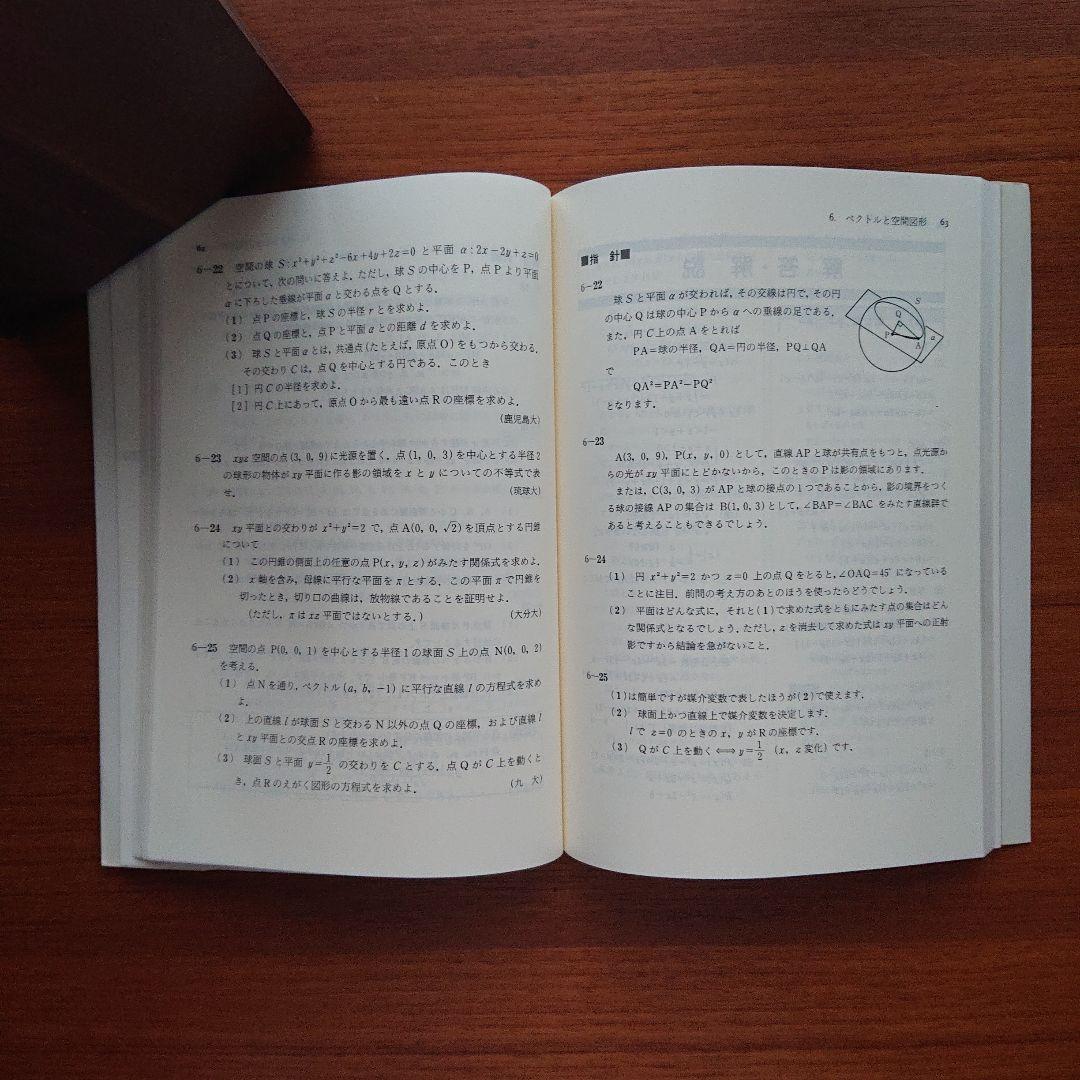 62
6—22 空間の球 S:x²+y²+z²−6x+4y+2z=0 と平面 α:2x−2y+z=0
とについて,次の問いに答えよ.ただし,球Sの中心をP,点Pより平面
αに下ろした垂線が平面αと交わる点をQとする.
(1) 点Pの座標と,球Sの半径 r とを求めよ.
(2) 点Qの座標と,点Pと平面αとの距離 d を求めよ.
(3) 球Sと平面αとは,共通点(たとえば,原点O)をもつから交わる.
その交わりCは,点Qを中心とする円である.このとき
[1] 円Cの半径を求めよ.
[2] 円C上にあって,原点Oから最も遠い点Rの座標を求めよ.
(鹿児島大)
6—23 xyz 空間の点(3, 0, 9)に光源を置く.点(1, 0, 3)を中心とする半径2
の球形の物体が xy 平面に作る影の領域を x と y についての不等式で表
せ.
(琉球大)
6—24 xy 平面との交わりが x²+y²=2 で,点 A(0, 0, √2) を頂点とする円錐
について
(1) この円錐の側面上の任意の点 P(x, y, z) がみたす関係式を求めよ.
(2) x 軸を含み,母線に平行な平面を π とする.この平面 π で円錐を
切ったとき,切り口の曲線は,放物線であることを証明せよ.
(ただし,π は xz 平面ではないとする.)
(大分大)
6—25 空間の点 P(0, 0, 1) を中心とする半径1の球面S上の点 N(0, 0, 2)
を考える.
(1) 点Nを通り,ベクトル (a, b, −1) に平行な直線 l の方程式を求め
よ.
(2) 上の直線 l が球面Sと交わるN以外の点Qの座標,および直線 l
と xy 平面との交点Rの座標を求めよ.
(3) 球面Sと平面 y=1/2 の交わりをCとする.点QがC上を動くと
き,点Rのえがく図形の方程式を求めよ.
(九 大)
6. ベクトルと空間図形 63
■指 針■
6—22
球Sと平面αが交われば,その交線は円で,その円
の中心Qは球の中心Pからαへの垂線の足である.
また,円C上の点Aをとれば
PA=球の半径,QA=円の半径,PQ⊥QA
で
QA²=PA²−PQ²
となります.
S
Q
P
A
α
6—23
A(3, 0, 9),P(x, y, 0) として,直線APと球が共有点をもつと,点光源か
らの光が xy 平面にとどかないから,このときのPは影の領域にあります.
または,C(3, 0, 3) がAPと球の接点の1つであることから,影の境界をつく
る球の接線APの集合は B(1, 0, 3)として,∠BAP=∠BAC をみたす直線群で
あると考えることもできるでしょう.
6—24
(1) 円 x²+y²=2 かつ z=0 上の点Qをとると,∠OAQ=45° になっている
ことに注目.前問の考え方のあとのほうを使ったらどうでしょう.
(2) 平面はどんな式に,それと(1)で求めた式をともにみたす点の集合はどん
な関係式となるでしょう.ただし,z を消去して求めた式は xy 平面への正射
影ですから結論を急がないこと.
6—25
(1)は簡単ですが媒介変数で表したほうが(2)で使えます.
(2) 球面上かつ直線上で媒介変数を決定します.
l で z=0 のときの x, y がRの座標です.
(3) QがC上を動く⟺y=1/2 (x, z 変化)です.